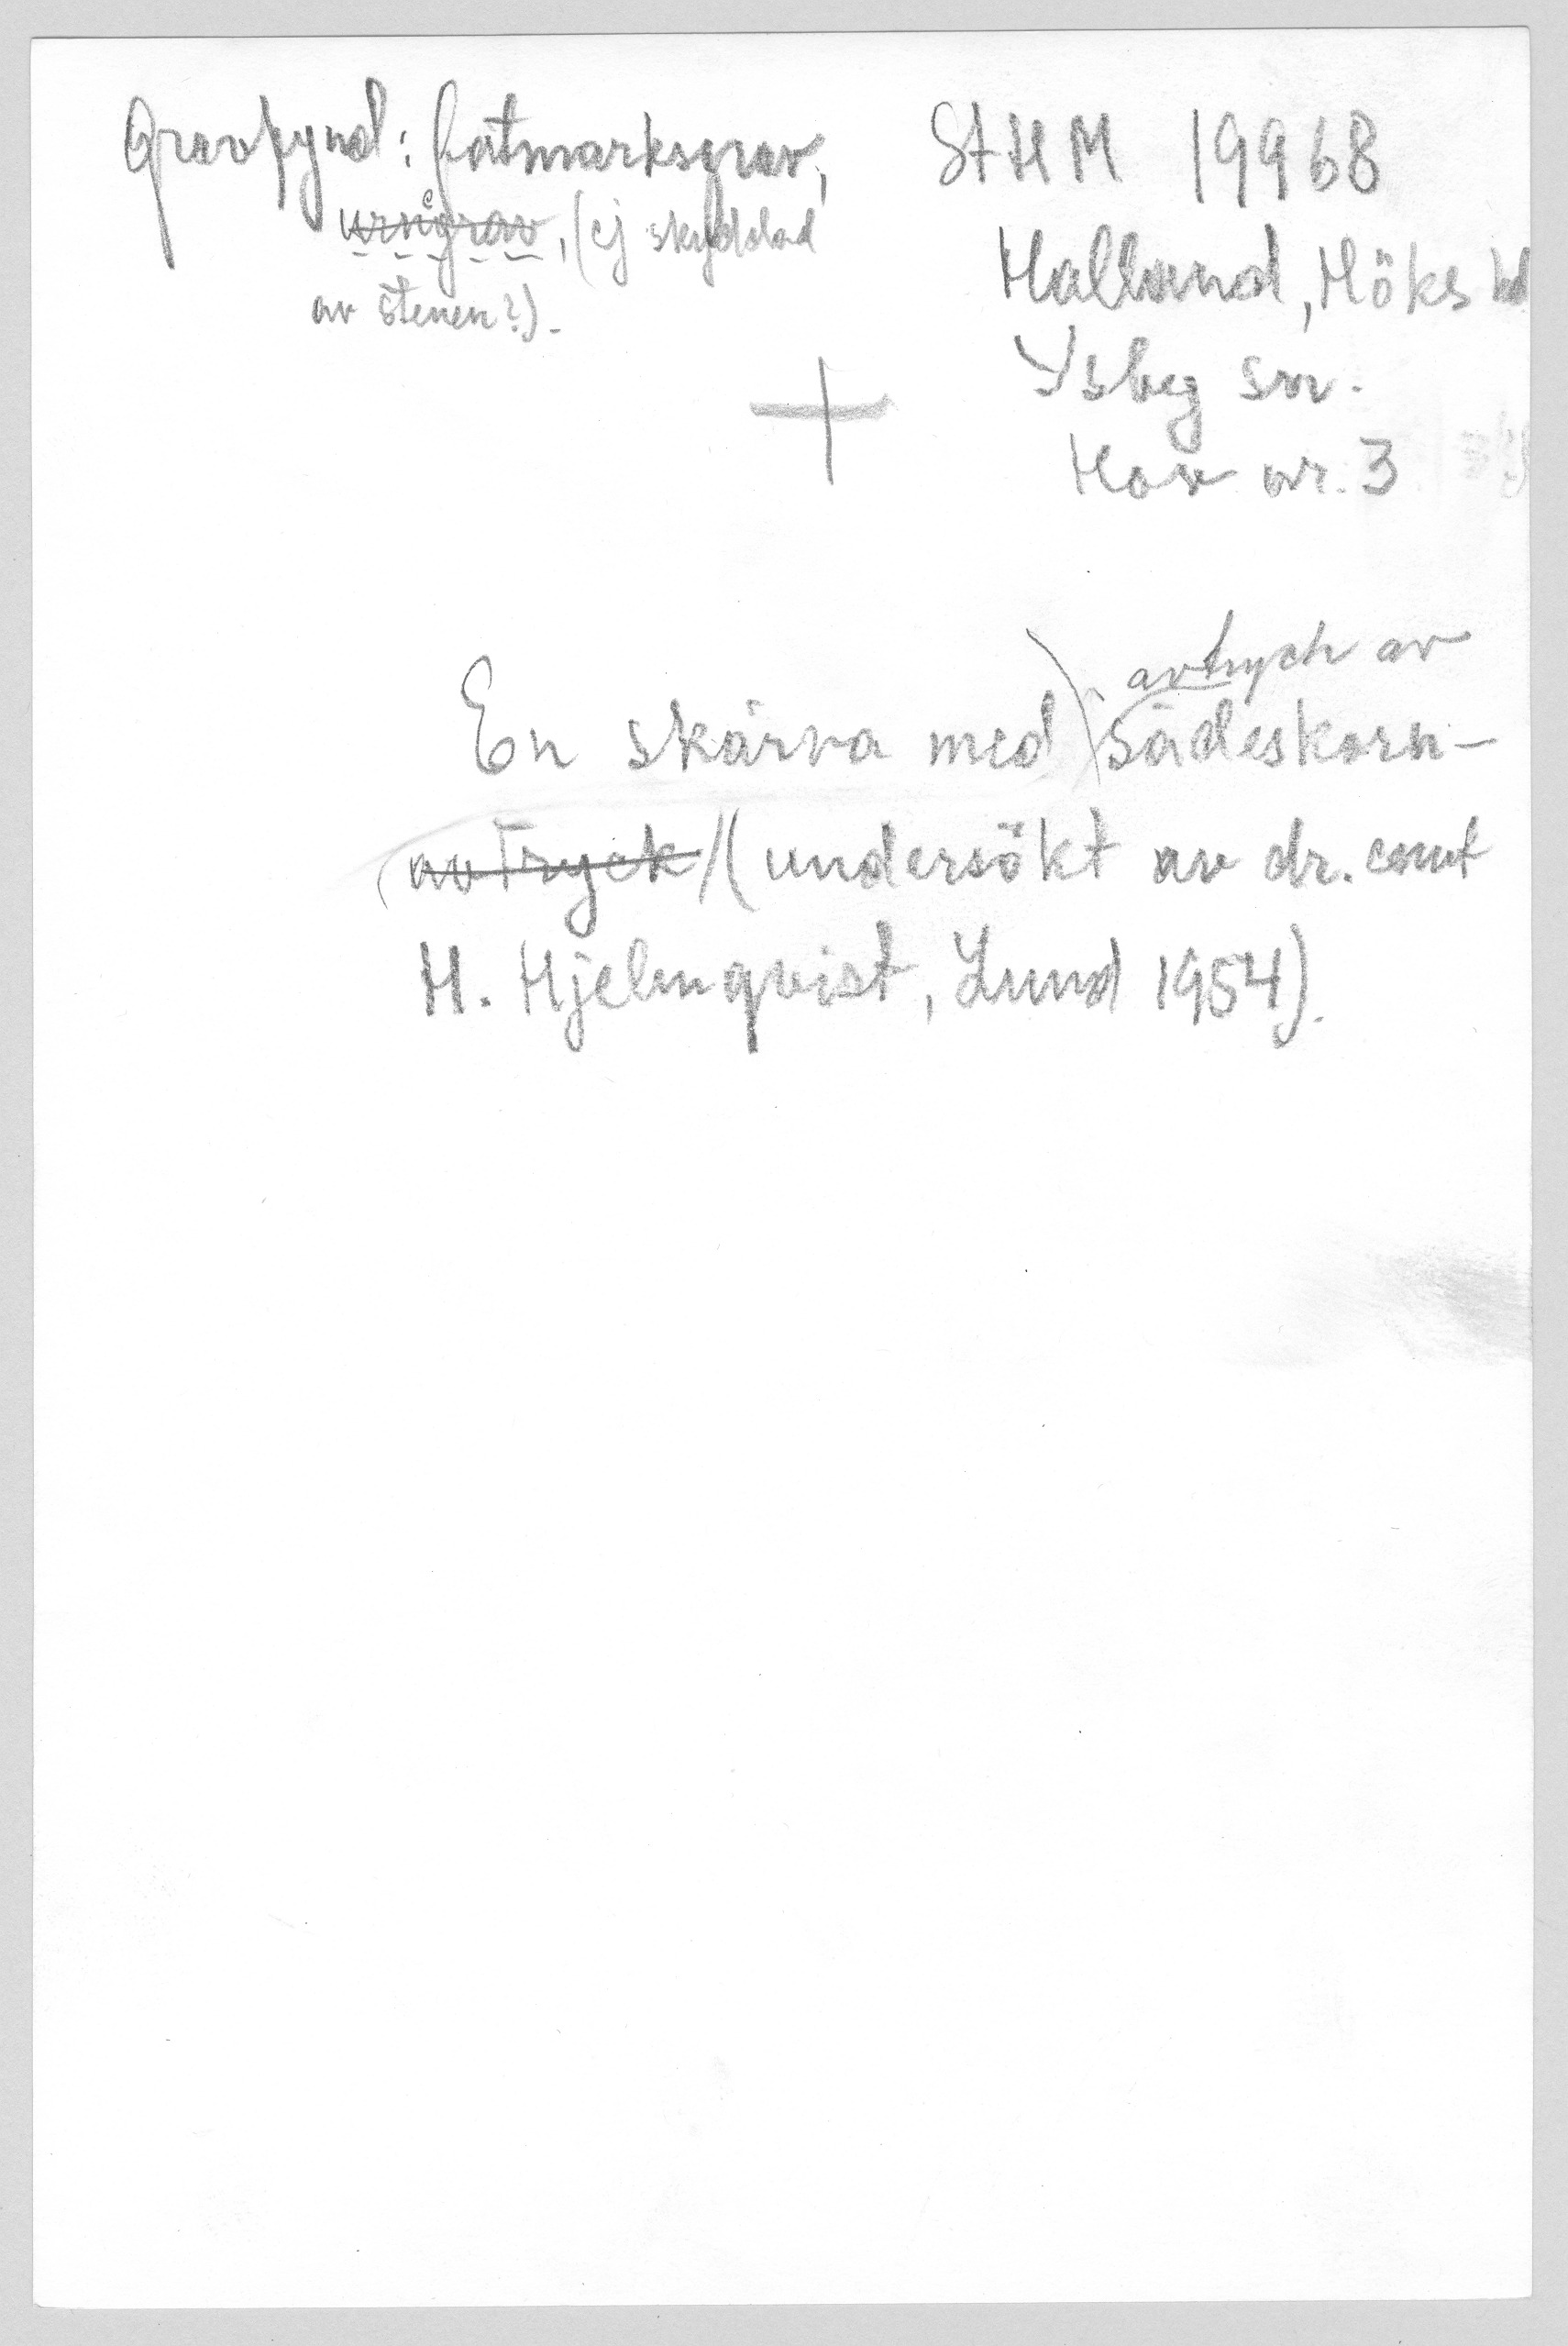 Gravfynd: flatmarksgrav,
urnegrav, (ej skyddad
av stenen?).
StHM 19968
Halland, Höks hd
Ysby sn.
Hov nr. 3
avtryck av
En skärva med sädeskorn-
avtryck (undersökt av dr.
H. Hjelmqvist, Lund 1954).